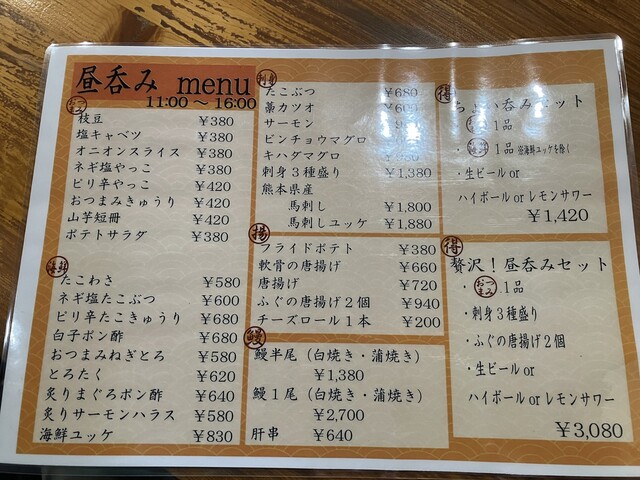 昼呑み menu
11:00～16:00
おつまみ
枝豆 ¥380
塩キャベツ ¥380
オニオンスライス ¥380
ネギ塩やっこ ¥380
ピリ辛やっこ ¥420
おつまみきゅうり ¥420
山芋短冊 ¥420
ポテトサラダ ¥380
海鮮
たこわさ ¥580
ネギ塩たこぶつ ¥600
ピリ辛たこきゅうり ¥680
白子ポン酢 ¥680
おつまみねぎとろ ¥580
とろたく ¥620
炙りまぐろポン酢 ¥640
炙りサーモンハラス ¥580
海鮮ユッケ ¥830
刺身
たこぶつ ¥680
藁カツオ
サーモン
ビンチョウマグロ
キハダマグロ
刺身３種盛り ¥1,380
熊本県産
馬刺し ¥1,800
馬刺しユッケ ¥1,880
揚
フライドポテト ¥380
軟骨の唐揚げ ¥660
唐揚げ ¥720
ふぐの唐揚げ２個 ¥940
チーズロール１本 ¥200
鰻
鰻半尾（白焼き・蒲焼き）
¥1,380
鰻１尾（白焼き・蒲焼き）
¥2,700
肝串 ¥640
得
ちょい呑みセット
・ 1品
・海鮮 1品 ※海鮮ユッケを除く
・生ビール or
ハイボール or レモンサワー
¥1,420
得
贅沢！昼呑みセット
・おつまみ 1品
・刺身３種盛り
・ふぐの唐揚げ２個
・生ビール or
ハイボール or レモンサワー
¥3,080